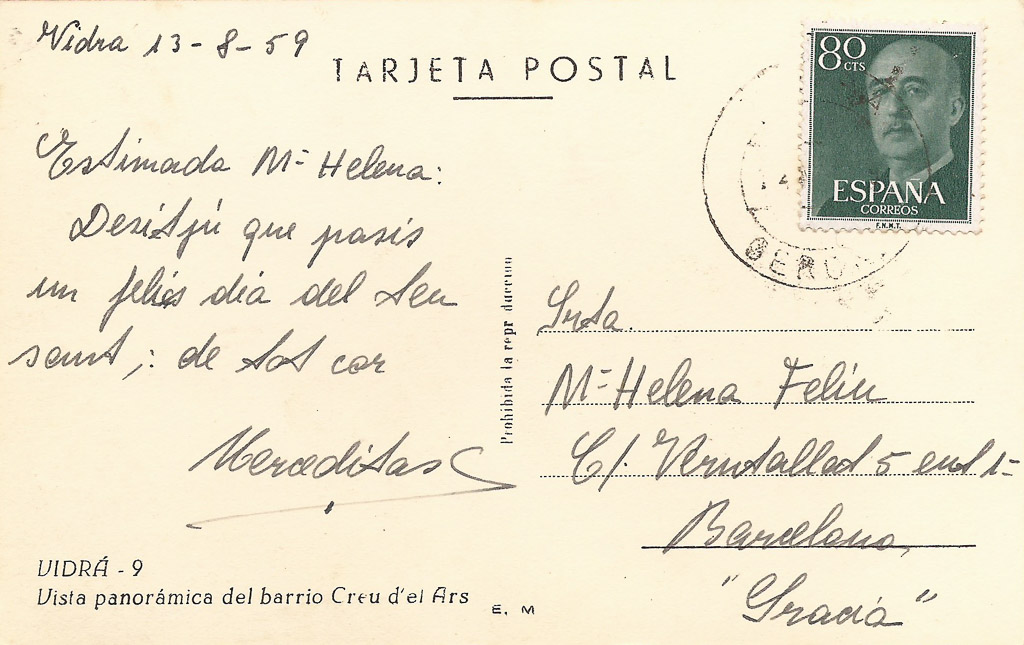 Vidra 13-8-59
TARJETA POSTAL
80 CTS
ESPAÑA
CORREOS
F.N.M.T.
Estimada Mª Helena:
Desitjú que pasis
un felis dia del seu
sant; de tot cor
Merceditas
Prohibida la repr duccion
Srta.
Mª Helena Feliu
C/. Verntallat 5 ent 1ª
Barcelona,
"Gracia"
VIDRÁ - 9
Vista panorámica del barrio Creu d'el Ars
E. M